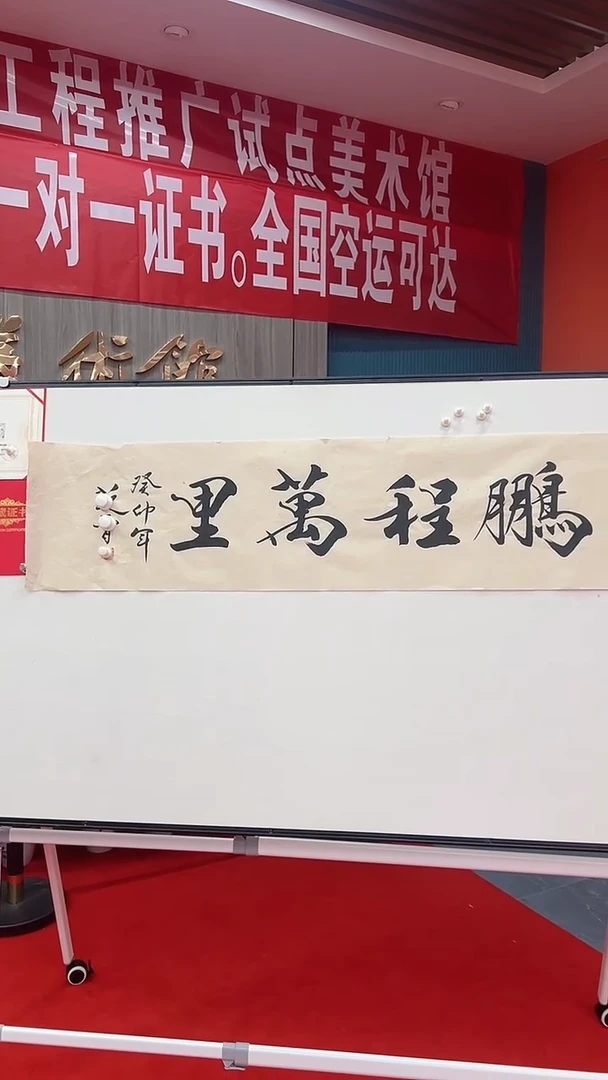 工程推广试点美术馆
一对一证书。全国空运可达
術館
鵬程萬里
癸卯年
证书